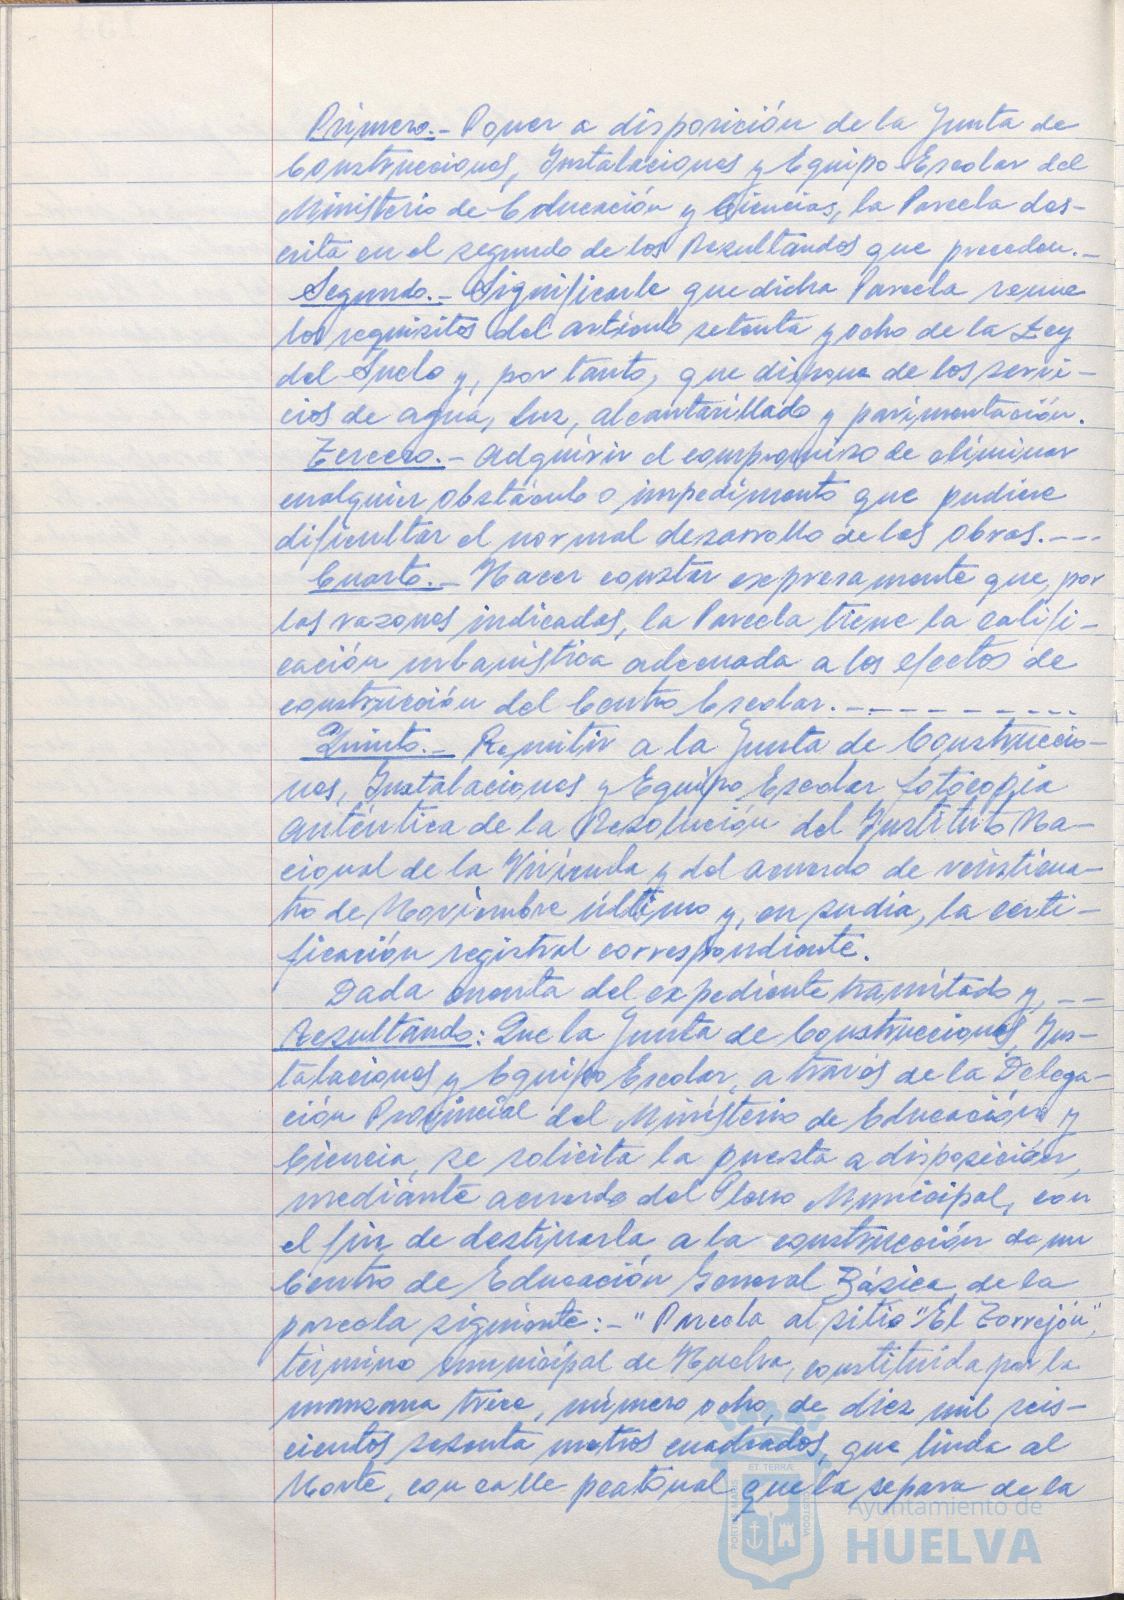 Primero.- Poner a disposición de la Junta de
Construcciones, Instalaciones y Equipo Escolar del
Ministerio de Educación y Ciencias, la Parcela des-
crita en el segundo de los Resultandos que preceden.-
Segundo.- Significarle que dicha Parcela reune
los requisitos del artículo setenta y ocho de la Ley
del Suelo y, por tanto, que dispone de los servi-
cios de agua, luz, alcantarillado y pavimentación.
Tercero.- Adquirir el compromiso de eliminar
cualquier obstáculo o impedimento que pudiere
dificultar el normal desarrollo de las obras.---
Cuarto.- Hacer constar expresamente que, por
las razones indicadas, la Parcela tiene la califi-
cación urbanística adecuada a los efectos de
construcción del Centro Escolar.----------
Quinto.- Remitir a la Junta de Construccio-
nes, Instalaciones y Equipo Escolar fotocopia
auténtica de la Resolución del Instituto Na-
cional de la Vivienda y del acuerdo de veinticua-
tro de Noviembre último y, en su dia, la certi-
ficación registral correspondiente.
Dada cuenta del expediente tramitado y,--
Resultando: Que la Junta de Construcciones, Ins-
talaciones y Equipo Escolar, a través de la Delega-
ción Provincial del Ministerio de Educación y
Ciencia, se solicita la puesta a disposición,
mediante acuerdo del Pleno Municipal, con
el fin de destinarla a la construcción de un
Centro de Educación General Básica, de la
parcela siguiente:- "Parcela al sitio "El Torrejón",
término municipal de Huelva, constituida por la
manzana trece, número ocho, de diez mil seis-
cientos sesenta metros cuadrados, que linda al
Norte, con calle peatonal que la separa de la
ET TERRÆ
PORTUS MARIS
CUSTODIA
Ayuntamiento de
HUELVA